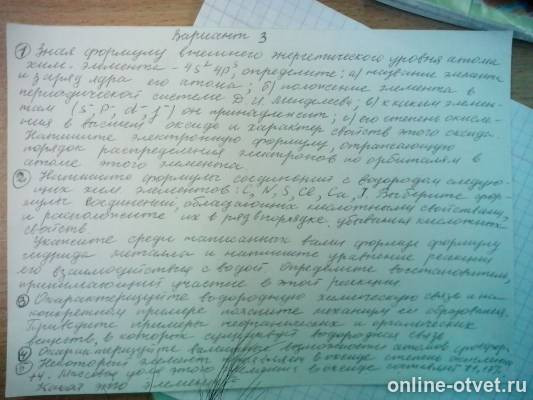 Вариант 3
① Зная формулу внешнего энергетического уровня атома
хим. элемента - 4s² 4p⁵, определите: а) название элемента
и заряд ядра его атома; б) положение элемента в
периодической системе Д.И. Менделеева; в) к каким элемен-
там (s-, p-, d-, f-) он принадлежит; г) его степень окисле-
ния в высшем оксиде и характер свойств этого оксида.
Напишите электронную формулу, отражающую
порядок распределения электронов по орбиталям в
атоме этого элемента.
② Напишите формулы соединений с водородом следую-
щих хим элементов: C, N, S, Cl, Ca, I. Выберите фор-
мулы соединений, обладающих кислотными свойствами,
и расположите их в ряд в порядке убывания кислотных
свойств.
Укажите среди написанных вами формул формулу
гидрида металла и напишите уравнение реакции
его взаимодействия с водой. Определите восстановитель,
принимающий участие в этой реакции.
③ Охарактеризуйте водородную химическую связь и на
конкретном примере поясните механизм ее образования.
Приведите примеры неорганических и органических
веществ, в которых существует водородная связь.
④ Охарактеризуйте валентные возможности атомов
Некоторый элемент проявляет в оксиде степень окисления
+4. Массовая доля этого элемента в оксиде составляет
Какой это элемент?
online-otvet.ru